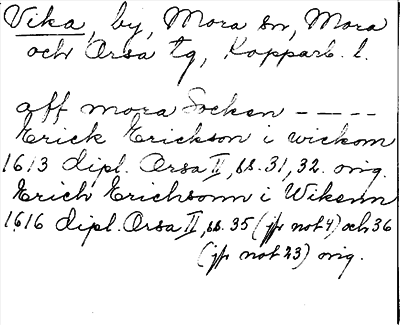 Vika, by, Mora sn, Mora
och Orsa tg, Kopparb. l.
aff mora Socken - - - -
Erick Erickson i wickom
1613 dipl. Orsa II, ss. 31, 32. orig.
Erich Erichsonn i Wikenn
1616 dipl. Orsa II, ss. 35 (jfr not 4) och 36
(jfr not 23) orig.